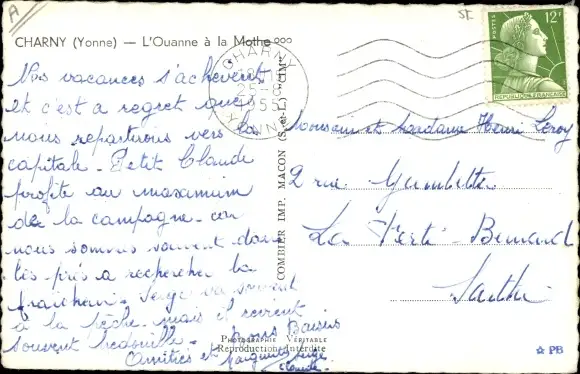 A
CHARNY (Yonne) — L'Ouanne à la Mothe
CHARNY
25-8
1955
YONNE
12F
POSTES
REPUBLIQUE FRANCAISE
Nos vacances s'achèvent
et c'est a regret que
nous repartirons vers la
capitale - Petit Claude
profite au maximum
de la campagne - car
nous sommes souvent dans
les prés a rechercher la
fraîcheur. Serge va souvent
à la pêche - mais il revient
souvent bredouille -
bons Baisers
Amitiés et
Marguerite Serge
Claude -
COMBIER IMP. MACON (S.-et-L.)
Monsieur et Madame Henri Leroy
2 rue Gambetta
La Ferté - Bernard
Sarthe
PHOTOGRAPHIE VÉRITABLE
Reproduction Interdite
☆ PB